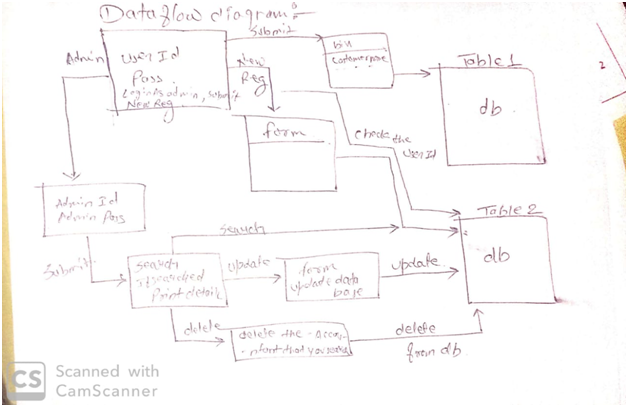 ① Dataflow diagram:-
Submit
Admin
User Id
Pass.
Login As admin, Submit
New Reg.
New
Reg
bill
Customer
Table 1
db
2
form
check the
User Id
Admin Id
Admin Pass
Submit
search
Table 2
db
search
If searched
Print details
update
form
update data
base
update
delete
delete the accou-
-nt that you
delete
from db
CS Scanned with
CamScanner